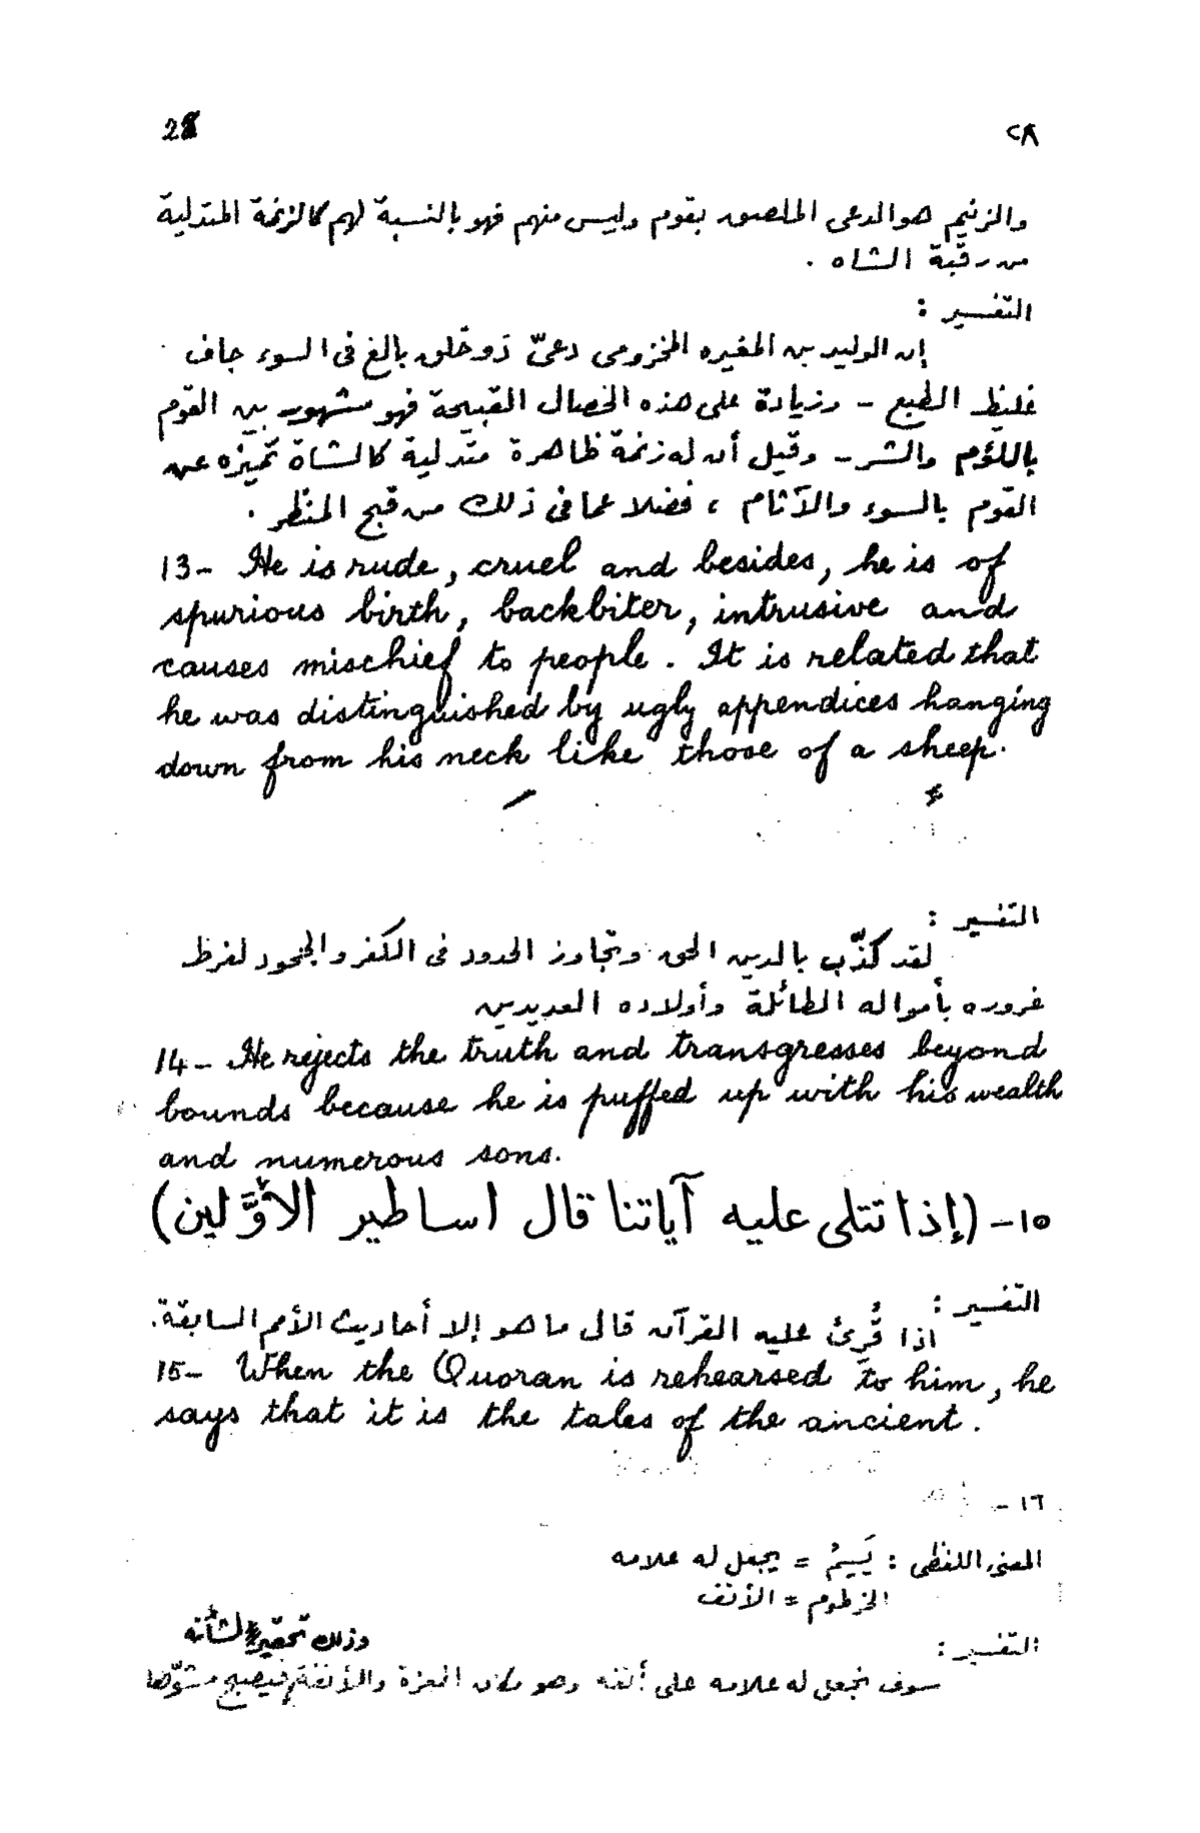 28 ٢٨
والزنيم هو الدعى الملصق بقوم وليس منهم فهو بالنسبة لهم كالزنمة المتدلية
من رقبة الشاه .
التفسير :
إن الوليد بن المغيره المخزومى دعىّ ذو خلق بالغ فى السوء جاف
غليظ الطبع - وزيادة على هذه الخصال القبيحة فهو مشهور بين القوم
باللؤم والشر - وقيل أن له زنمة ظاهرة متدلية كالشاة تميزه عن
القوم بالسوء والآثام ، فضلا عما فى ذلك من قبح المنظر .
13- He is rude, cruel and besides, he is of
spurious birth, backbiter, intrusive and
causes mischief to people. It is related that
he was distinguished by ugly appendices hanging
down from his neck like those of a sheep.
التفسير :
لقد كذّب بالدين الحق وتجاوز الحدود فى الكفر والجحود لفرط
غروره بأمواله الطائلة وأولاده العديدين
14- He rejects the truth and transgresses beyond
bounds because he is puffed up with his wealth
and numerous sons.
١٥- (إذا تتلى عليه آياتنا قال اساطير الأوَّلين)
التفسير :
اذا قُرِئ عليه القرآن قال ما هو إلا أحاديث الأمم السابقة.
15- When the Quoran is rehearsed to him, he
says that it is the tales of the ancient.
١٦ -
المعنى اللفظى : يَسِمُ = يجعل له علامه
الخرطوم = الأنف
التفسير :
وذلك تحقيرا لشأنه
سوف نجعل له علامه على أنفه وهو مكان العزة والأنفة فيصبح مشوّها